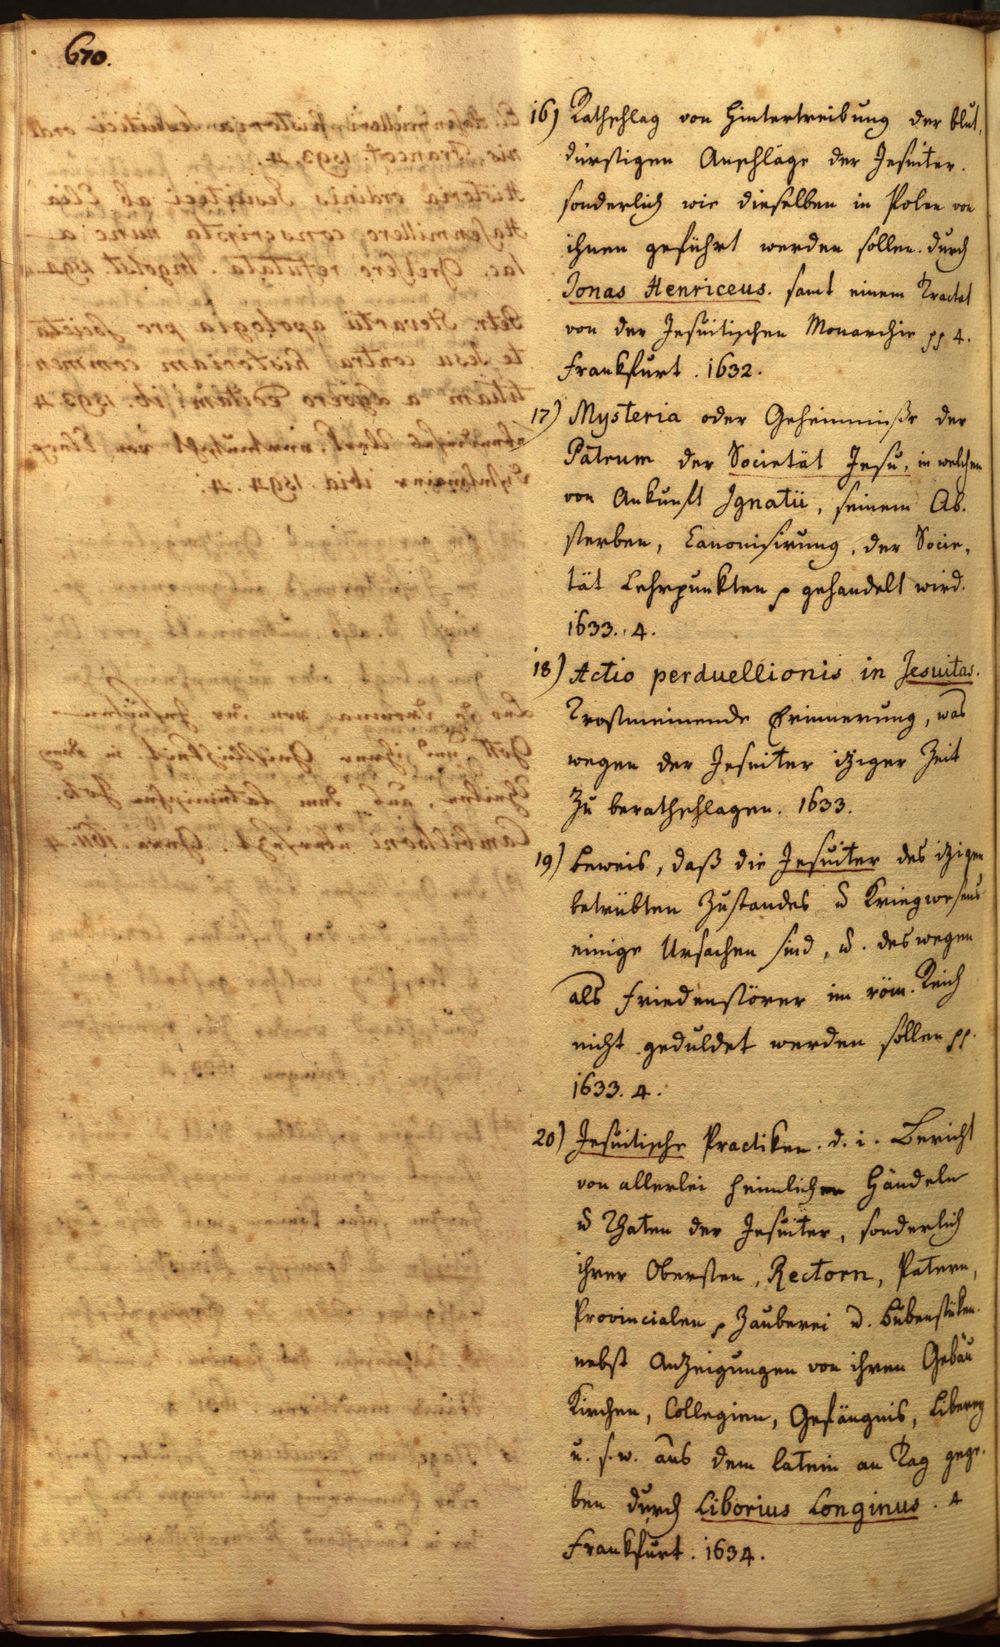 670.
16) Rathschlag von Hintertreibung der blut,
dürstigen Anschläge der Jesuiter.
sonderlich wie dieselben in Polen von
ihnen geführt werden sollen. durch
Jonas Henriceus. samt einem Tractat
von der Jesuitischen Monarchie pp 4.
Frankfurt. 1632.
17) Mysteria oder Geheimniße der
Patrum der Societät Jesu, in welchen
von Ankunft Ignatii, seinem Ab.
sterben, Canonisirung, der Socie,
tät Lehrpunkten p gehandelt wird.
1633. 4.
18) Actio perduellionis in Jesuitas.
Trostmeinende Erinnerung, was
wegen der Jesuiter itziger Zeit
zu berathschlagen. 1633.
19) Beweis, daß die Jesuiter des itzigen
betrübten Zustandes u Kriegwesens
einige Ursachen sind, u. deswegen
als Friedenstörer im röm. Reich
nicht geduldet werden sollen pp.
1633. 4.
20) Jesuitische Practiken. d. i. Bericht
von allerlei heimlichen Händeln
u Thaten der Jesuiter, sonderlich
ihrer Obersten, Rectorn, Patern,
Provincialen p Zauberei u. Bubenstüken.
nebst Anzeigungen von ihren Gebäu
Kirchen, Collegien, Gefängnis, Liberey
u. s. w. aus dem latein an Tag gege.
ben durch Liborius Longinus. 4
Frankfurt. 1634.